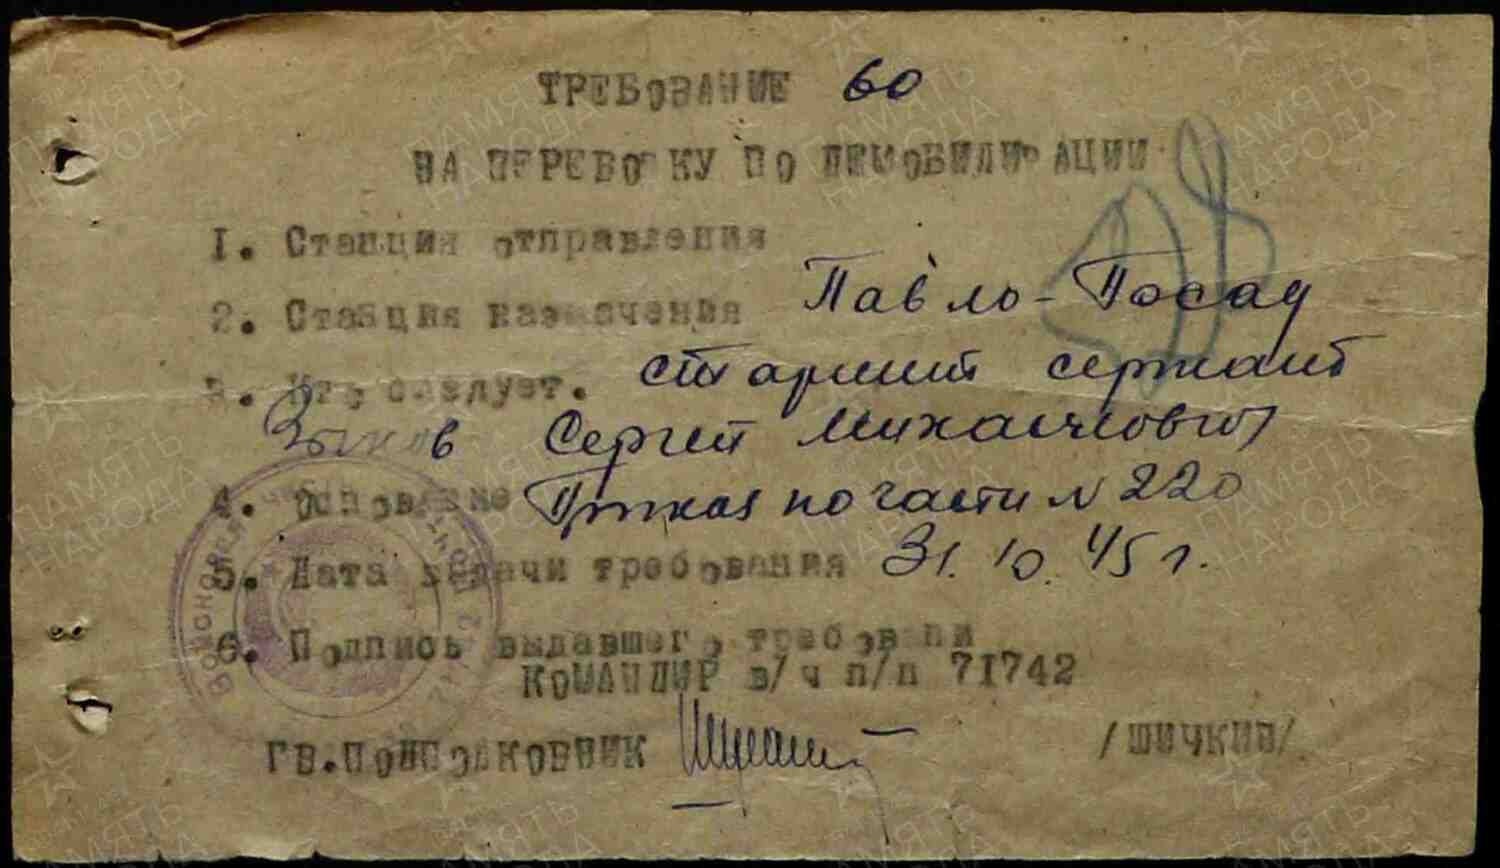 ТРЕБОВАНИЕ 60
НА ПЕРЕВОЗКУ ПО ДЕМОБИЛИЗАЦИИ
1. Станция отправления
2. Станция назначения Павло-Посад
3. Кто следует. старший сержант
Зыков Сергей Михайлович
4. Основание Приказ по части № 220
5. Дата выдачи требования 31.10.45 г.
6. Подпись выдавшего требовани
КОМАНДИР в/ч п/п 71742
ГВ.ПОДПОЛКОВНИК /ШИЧКИН/